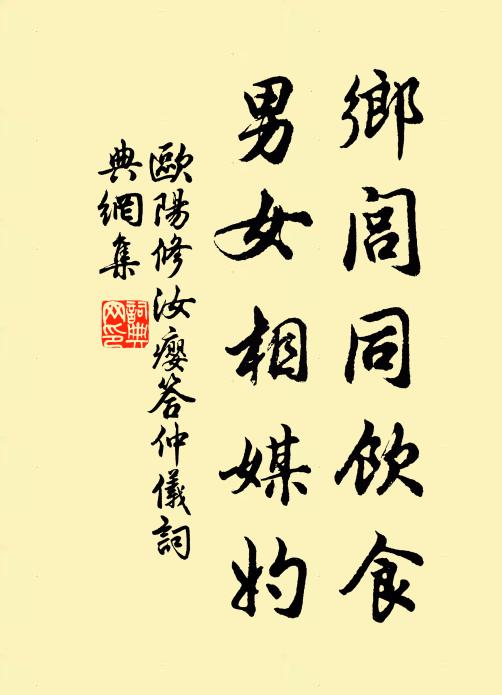 鄉閭同飲食
男女相媒妁
歐陽修汝癭答仲儀詞
典網集
詞典
网印